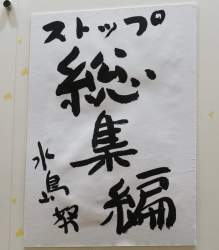 ストップ
総集編
水島努